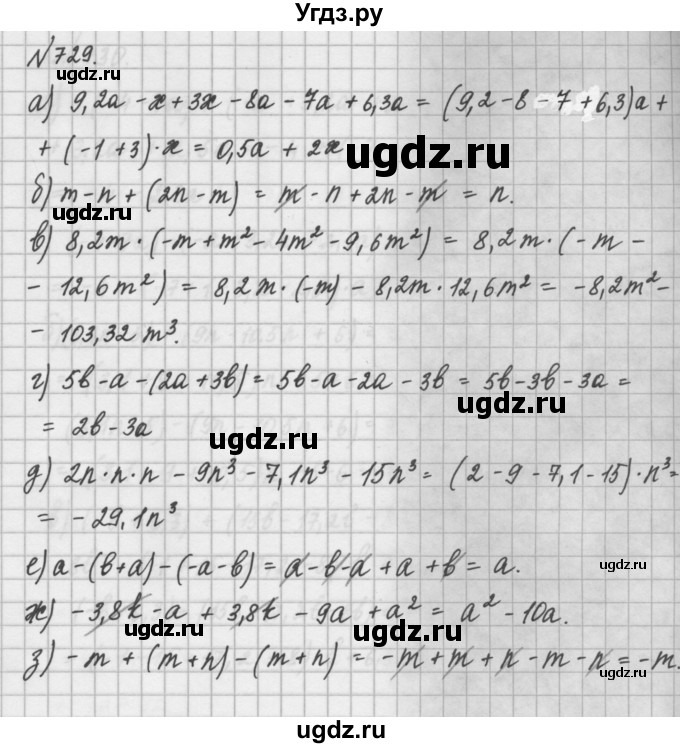 Угдз.ру
№729.
а) 9,2a - x + 3x - 8a - 7a + 6,3a = (9,2 - 8 - 7 + 6,3)a +
+ (-1 + 3)·x = 0,5a + 2x
ugdz.ru
ugdz.ru
б) m - n + (2n - m) = m - n + 2n - m = n.
в) 8,2m·(-m + m² - 4m² - 9,6m²) = 8,2m·(-m -
- 12,6m²) = 8,2m·(-m) - 8,2m·12,6m² = -8,2m² -
- 103,32m³.
г) 5b - a - (2a + 3b) = 5b - a - 2a - 3b = 5b - 3b - 3a =
ugdz.ru
= 2b - 3a
ugdz.ru
д) 2n·n·n - 9n³ - 7,1n³ - 15n³ = (2 - 9 - 7,1 - 15)·n³ =
= -29,1n³
е) a - (b + a) - (-a - b) = a - b - a + a + b = a.
ugdz.ru
ж) -3,8k - a + 3,8k - 9a + a² = a² - 10a.
ugdz.ru
ugdz.ru
з) -m + (m + n) - (m + n) = -m + m + n - m - n = -m.
ugdz.ru